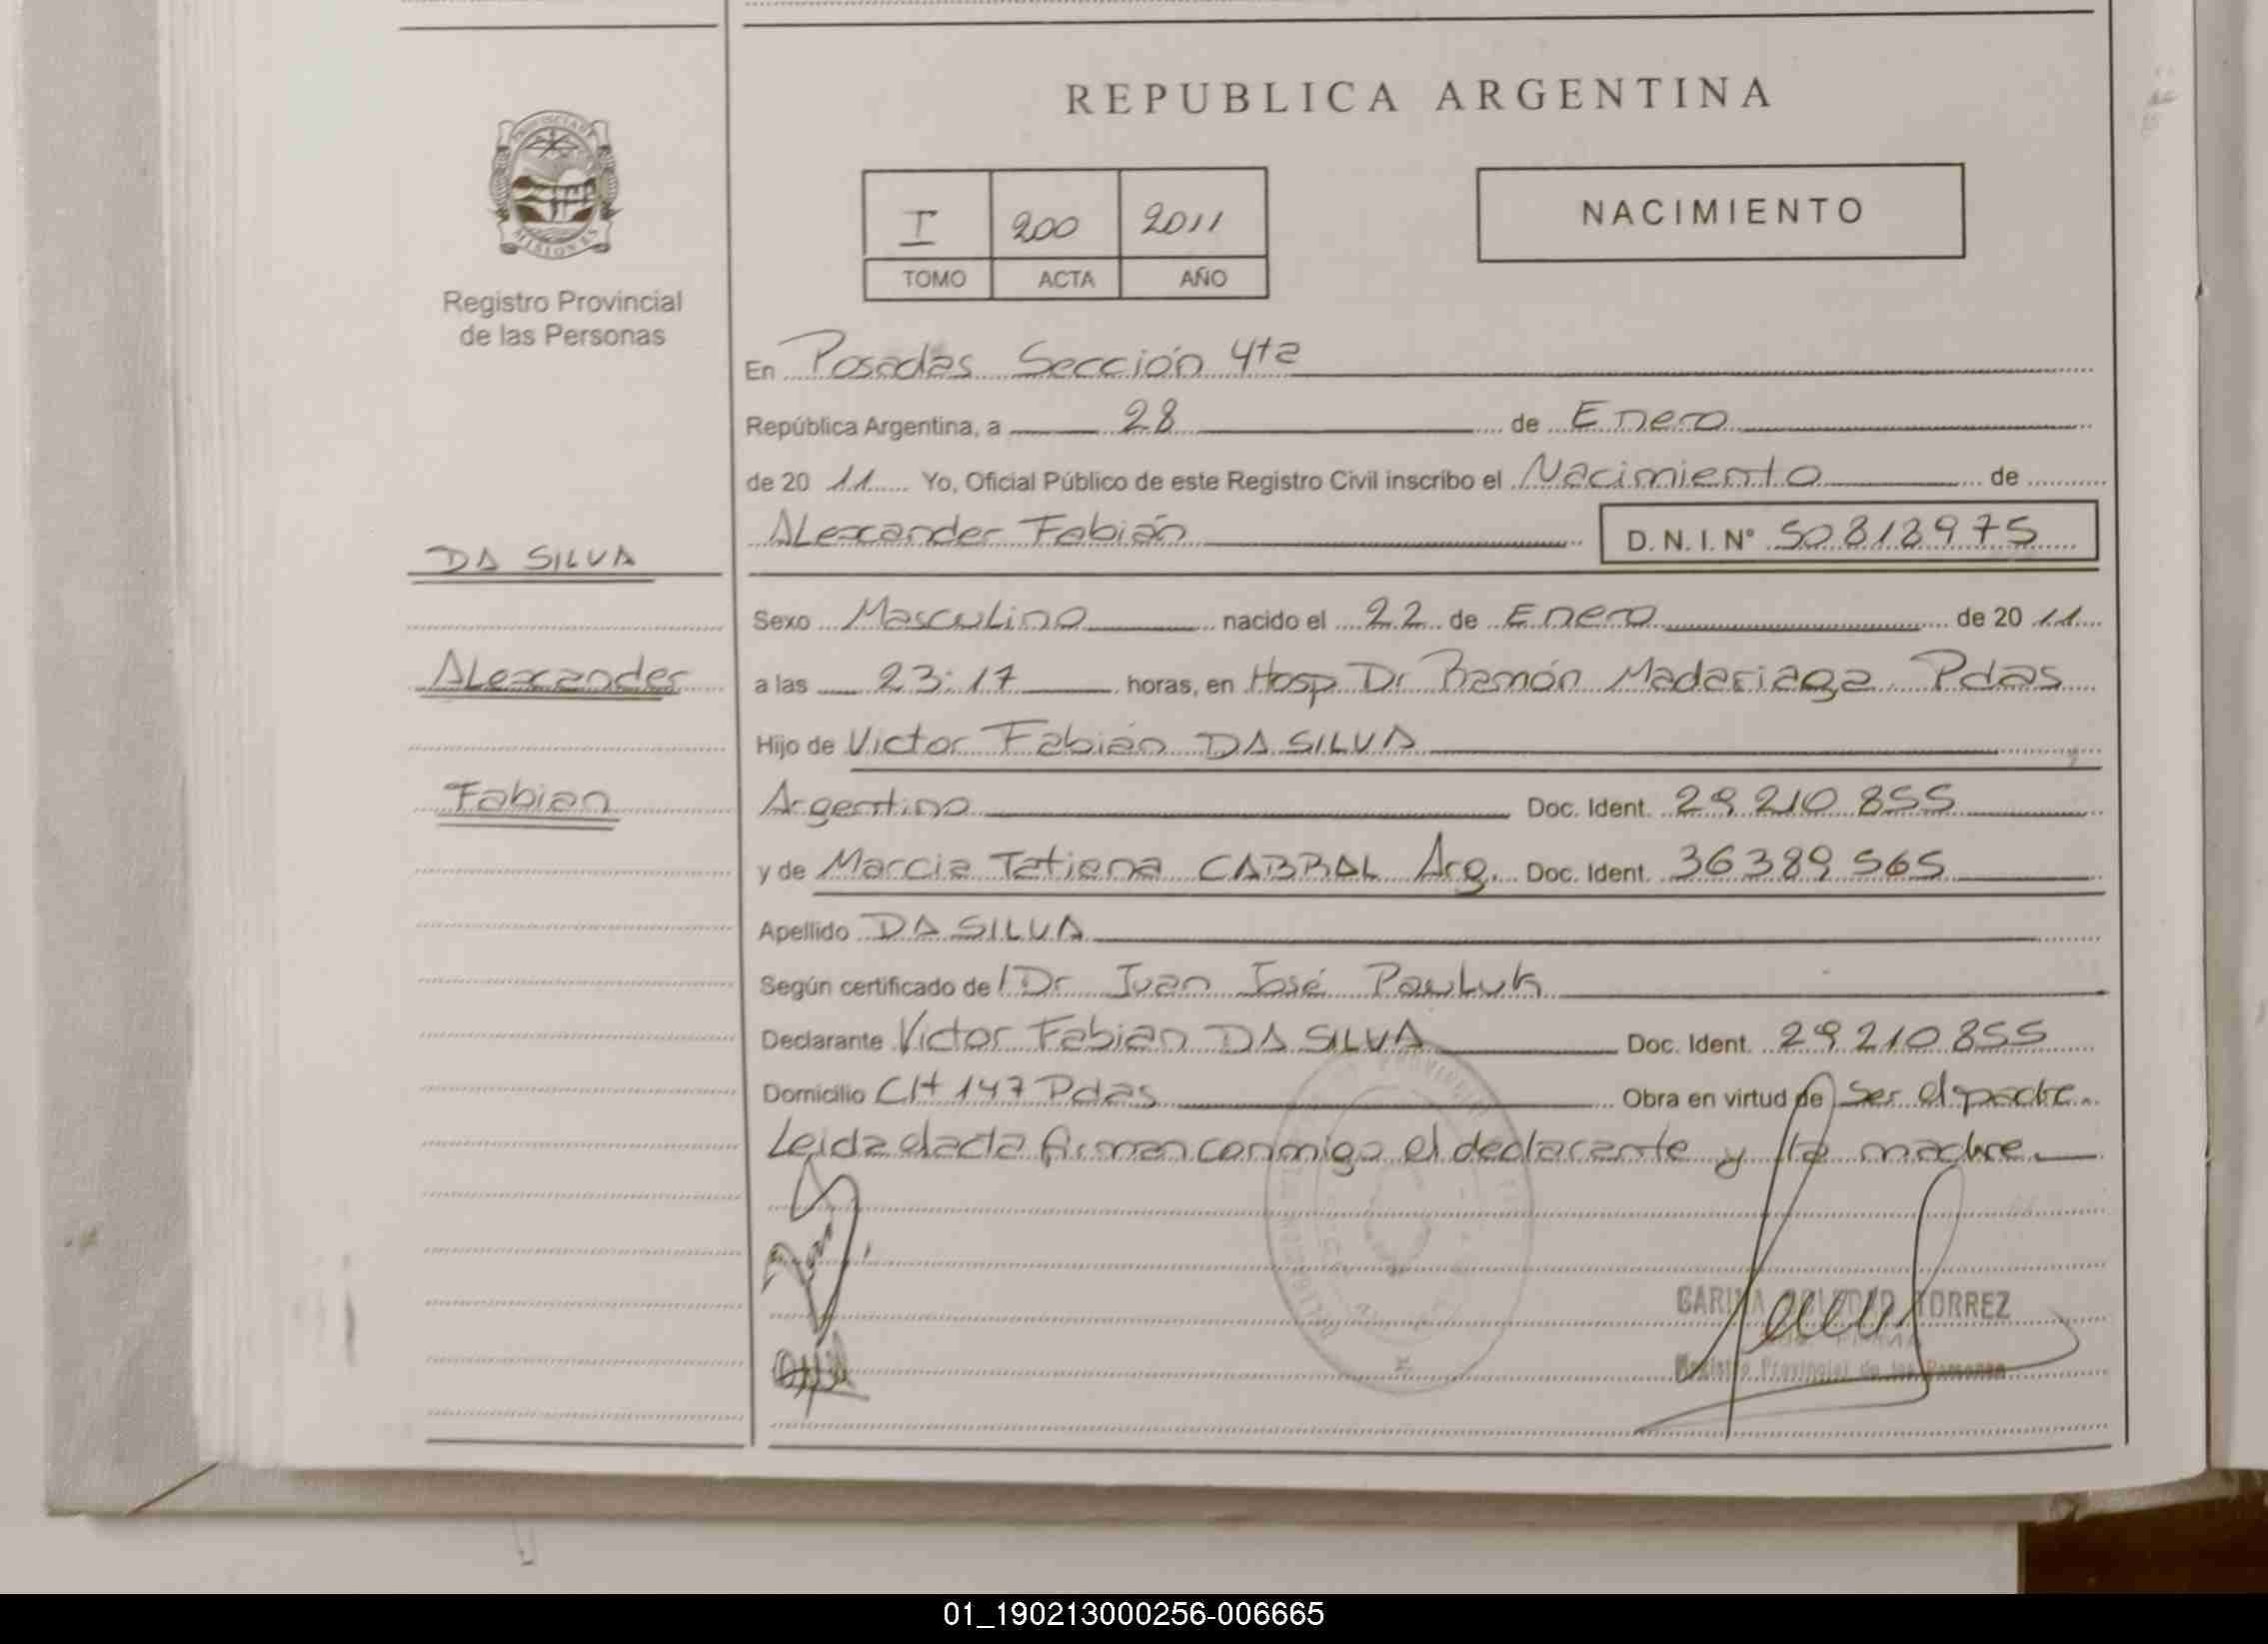 REPUBLICA ARGENTINA
PROVINCIA DE
MISIONES
Registro Provincial
de las Personas
I 200 2011
TOMO ACTA AÑO
NACIMIENTO
En Posadas Sección 4ta
República Argentina, a 28 de Enero
de 20 11 Yo, Oficial Público de este Registro Civil inscribo el Nacimiento de
Alexander Fabián D.N.I. Nº 50.813975
DA SILVA
Sexo Masculino nacido el 22 de Enero de 20 11
Alexander
a las 23:17 horas, en Hosp Dr Ramón Madariaga Pdas
Hijo de Victor Fabián DA SILVA y
Fabian
Argentino Doc. Ident. 29 210 855
y de Marcia Tatiana CABRAL Arg. Doc. Ident. 36389 565
Apellido DA SILVA
Según certificado de / Dr Juan José Pauluk
Declarante Victor Fabian DA SILVA Doc. Ident. 29 210 855
Domicilio CH 147 Pdas Obra en virtud de Ser el padre.
Leida elacta firman conmigo el declarante y la madre.
CARINA SOLEDAD TORREZ
Registro Provincial de las Personas
01_190213000256-006665